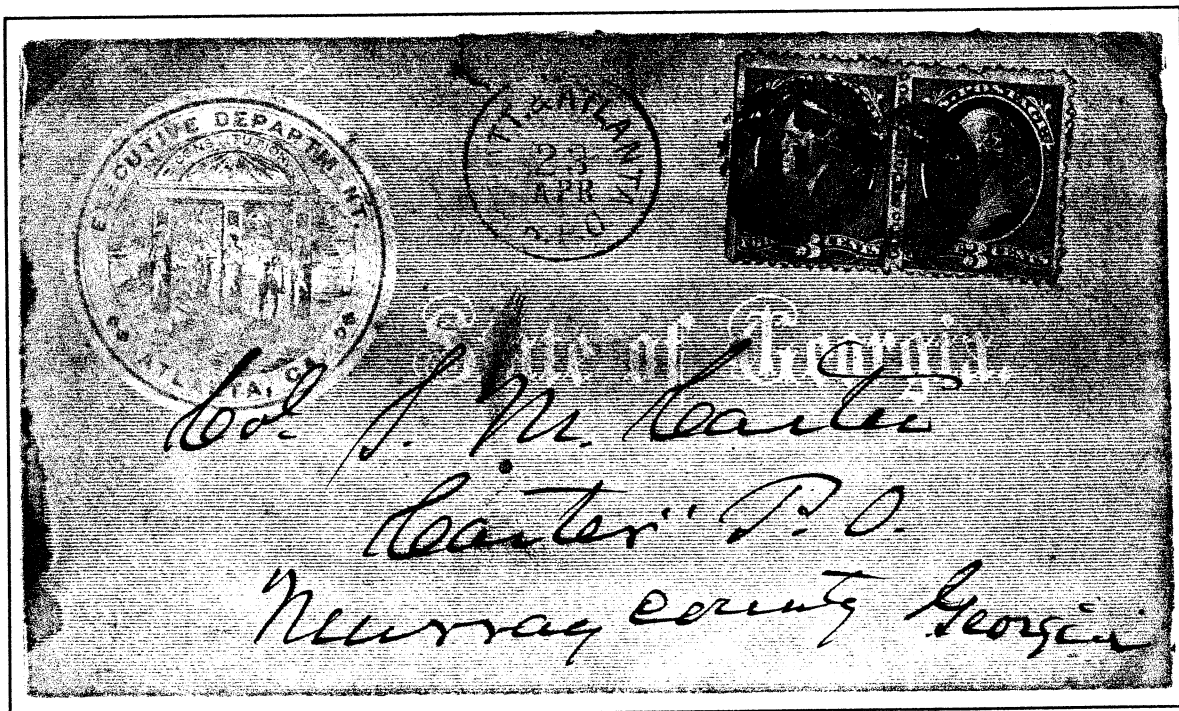 EXECUTIVE DEPARTMENT.
CONSTITUTION
ATLANTA, GA.
TT. & ATLANTA
APR
POSTAGE
3 CENTS 3 CENTS
State of Georgia.
Col. S. M. Carter
Carter" P. O.
Murray county Georgia